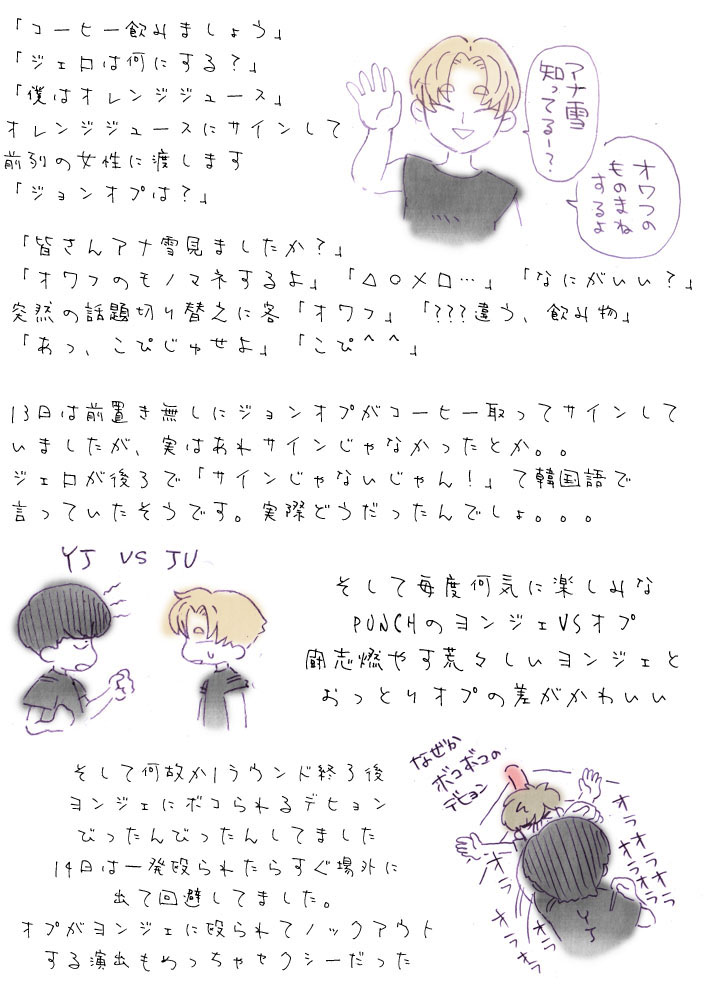 「コーヒー飲みましょう」
「ジェロは何にする？」
「僕はオレンジジュース」
オレンジジュースにサインして
前列の女性に渡します
「ジョンオプは？」
アナ雪
知ってるー？
オワフの
ものまね
するよ
「皆さんアナ雪見ましたか？」
「オワフのモノマネするよ」「△○×□…」「なにがいい？」
突然の話題切り替えに客「オワフ」「???違う、飲み物」
「あっ、こぴじゅせよ」「こぴ^^」
13日は前置き無しにジョンオプがコーヒー取ってサインして
いましたが、実はあれサインじゃなかったとか。。
ジェロが後ろで「サインじゃないじゃん！」て韓国語で
言っていたそうです。実際どうだったんでしょ。。。
YJ VS JU
そして毎度何気に楽しみな
PUNCHのヨンジェVSオプ
闘志燃やす荒々しいヨンジェと
おっとりオプの差がかわいい
そして何故か1ラウンド終了後
ヨンジェにボコられるデヒョン
びったんびったんしてました
14日は一発殴られたらすぐ場外に
出て回避してました。
オプがヨンジェに殴られてノックアウト
する演出もめっちゃセクシーだった
なぜか
ボコボコの
デヒョン
オラ
オラオラ
オラオラ
オラ
オラ
オラ
オラ
オラ
YJ